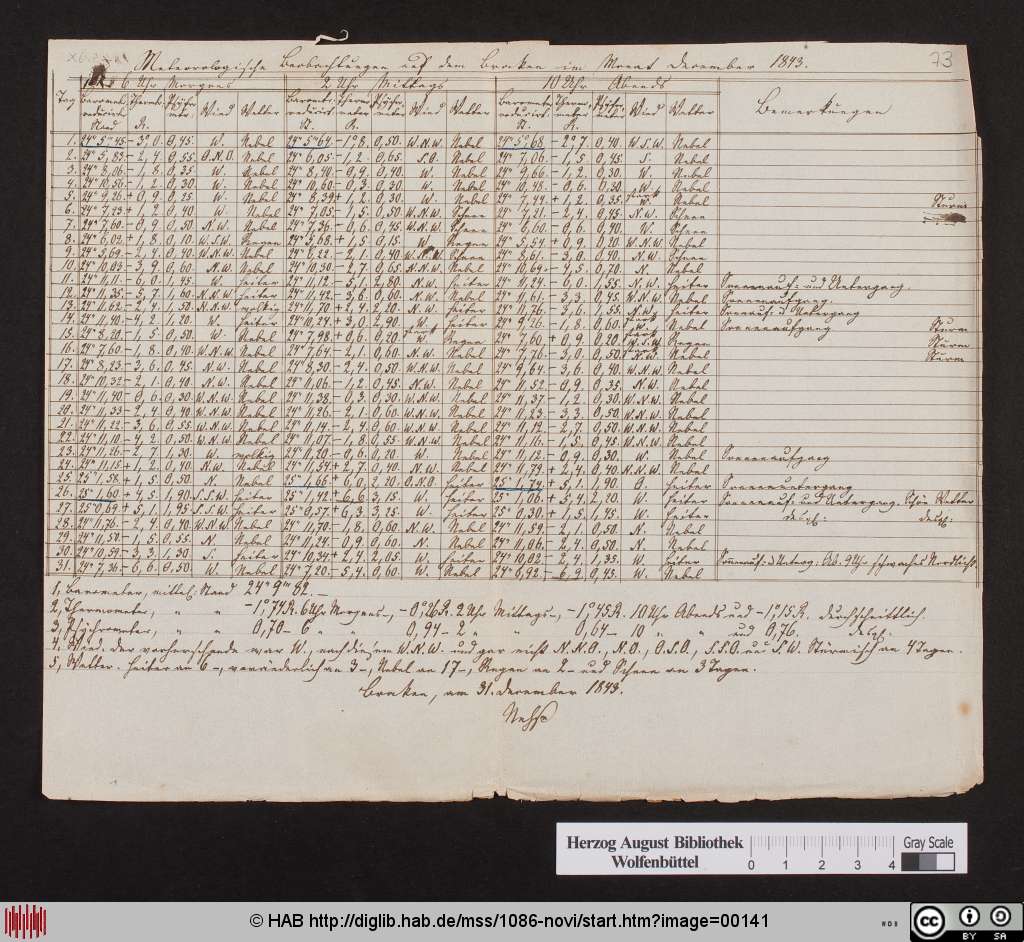 73
Meteorologische Beobachtungen auf dem Brocken im Monat December 1843.
6 Uhr Morgens 2 Uhr Mittags 10 Uhr Abends
Tag Wind Wetter Wind Wetter Wind Wetter Bemerkungen
1. 24" 5‴ 45 - 3°,0 0,45. W. Nebel 24" 5‴ 64 - 1°,8 0,50. W.N.W. Nebel 24" 5‴ 68 - 2°,7 0,40 W.S.W. Nebel
2. 24" 5,83 - 2,4 0,55 O.N.O. Nebel 24" 6,05 - 1,2 0,65. S.O. Nebel 24" 7,06 - 1,5 0,45 S. Nebel
3. 24" 8,06 - 1,8 0,35 W. Nebel 24" 8,40 - 0,9 0,40 W. Nebel 24" 9,66 - 1,2 0,30 W. Nebel
4. 24" 10,56 - 1,2 0,30 W. Nebel 24" 10,60 - 0,3 0,30 W. Nebel 24" 10,48 - 0,6 0,30 W. Nebel
5. 24" 9,26 + 0,9 0,25 W. Nebel 24" 8,39 + 1,2 0,30 W. Nebel 24" 7,44 + 1,2 0,35 W. Nebel Sturm
6. 24" 7,23 + 1,2 0,40 W. Nebel 24" 7,05 - 1,5 0,50 W.N.W. Schnee 24" 7,21 - 2,4 0,45 N.W. Schnee
7. 24" 7,60 - 0,9 0,50 N.W. Nebel 24" 7,36 - 0,6 0,45 W.N.W. Schnee 24" 6,60 - 0,6 0,40 W. Schnee
8. 24" 6,02 + 1,8 0,10 W.S.W. Regen 24" 5,68 + 1,5 0,15 W. Regen 24" 5,54 + 0,9 0,20 W.N.W. Nebel
9. 24" 5,69 - 2,4 0,40 W.N.W. Nebel 24" 6,22 - 2,1 0,40 W.N.W. Schnee 24" 8,61 - 3,0 0,40 N.W. Schnee
10. 24" 10,03 - 3,9 0,60 N.W. Nebel 24" 10,50 - 2,7 0,65 N.N.W. Nebel 24" 10,69 - 4,5 0,70 N. Nebel
11. 24" 11,11 - 6,0 1,45 W. heiter 24" 11,12 - 5,1 2,80 N.W. heiter 24" 11,24 - 6,0 1,55 N.W. heiter Sonnenauf- und Untergang.
12. 24" 11,35 - 3,7 1,60 N.N.W. heiter 24" 11,42 - 3,6 0,60 N.W. Nebel 24" 11,61 - 3,3 0,45 W.N.W. Nebel Sonnenaufgang.
13. 24" 11,62 - 2,4 1,50 N.N.W. wolkig 24" 11,70 + 2,20 N.W. heiter 24" 11,76 - 3,6 1,55 N.W. heiter Sonnenauf- u. Untergang
14. 24" 11,40 - 4,2 1,20 W. heiter 24" 10,24 + 3,0 2,90 W. heiter 24" 9,26 - 1,8 0,60 W. Nebel Sonnenaufgang Sturm
15. 24" 8,20 - 1,5 0,50 W. Nebel 24" 7,98 + 0,6 0,20 W. Regen 24" 7,60 + 0,9 0,20 W.S.W. Regen Sturm
16. 24" 7,60 - 1,8 0,40 W.N.W. Nebel 24" 7,64 - 2,1 0,60 N.W. Nebel 24" 7,76 - 3,0 0,50 N.W. Nebel Sturm
17. 24" 8,23 - 3,6 0,45 N.W. Nebel 24" 8,30 - 2,4 0,50 W.N.W. Nebel 24" 9,64 - 3,6 0,40 W.N.W. Nebel
18. 24" 10,32 - 2,1 0,40 N.W. Nebel 24" 11,06 - 1,2 0,45 N.W. Nebel 24" 11,52 - 0,9 0,35 N.W. Nebel
19. 24" 11,40 - 0,6 0,30 W.N.W. Nebel 24" 11,38 - 0,3 0,30 W.N.W. Nebel 24" 11,37 - 1,2 0,30 W.N.W. Nebel
20. 24" 11,33 - 2,4 0,40 W.N.W. Nebel 24" 11,26 - 2,1 0,60 W.N.W. Nebel 24" 11,23 - 3,3 0,50 W.N.W. Nebel
21. 24" 11,22 - 3,6 0,55 W.N.W. Nebel 24" 11,14 - 2,4 0,60 W.N.W. Nebel 24" 11,12 - 2,7 0,50 W.N.W. Nebel
22. 24" 11,10 - 4,2 0,50 W.N.W. Nebel 24" 11,07 - 1,8 0,55 W.N.W. Nebel 24" 11,16 - 1,5 0,45 W.N.W. Nebel
23. 24" 11,26 - 2,7 1,30 W. wolkig 24" 11,20 - 0,6 0,20 W. Nebel 24" 11,12 - 0,9 0,30 W. Nebel Sonnenaufgang
24. 24" 11,15 + 1,2 0,40 N.W. Nebel 24" 11,54 + 2,7 0,40 N.W. Nebel 24" 11,79 + 2,4 0,40 N.N.W. Nebel
25. 25" 1,58 + 1,5 0,50 N. Nebel 25" 1,66 + 6,0 2,20 O.N.O. heiter 25" 1,74 + 5,1 1,90 O. heiter Sonnenuntergang
26. 25" 1,60 + 4,5 1,90 S.S.W. heiter 25" 1,42 + 6,6 3,15 W. heiter 25" 1,06 + 5,4 2,20 W. heiter Sonnenauf- und Untergang. Schön Wetter
27. 25" 0,69 + 5,1 1,95 S.S.W. heiter 25" 0,57 + 6,3 3,25 W. heiter 25" 0,30 + 1,5 1,45 W. heiter desgl: desgl:
28. 24" 11,76 - 2,4 0,40 W.N.W. Nebel 24" 11,70 - 1,8 0,60 N.W. Nebel 24" 11,59 - 2,1 0,50 N. Nebel
29. 24" 11,50 - 1,5 0,55 N. Nebel 24" 11,24 - 0,9 0,60 N. Nebel 24" 11,06 - 2,4 0,50 N. Nebel
30. 24" 10,59 - 3,3 1,30 S. heiter 24" 10,34 + 2,4 2,05 W. heiter 24" 10,02 - 2,4 1,35 W. heiter Sonnenauf- u. Unterg. Ab. 9 Uhr schwaches Nordlicht
31. 24" 7,36 - 6,6 0,50 W. Nebel 24" 7,20 - 5,4 0,60 W. Nebel 24" 8,92 - 6,9 0,45 W. Nebel
1, Barometer, mittl. Stand 24" 9‴ 82.
2, Thermometer, " " - 1°,74 R. 6 Uhr Morgens, - 0°,26 R. 2 Uhr Mittags, - 1°,45 R. 10 Uhr Abends und - 1°,15 R. durchschnittlich.
3, Psychrometer, " " 0,70 - 6 " " 0,94 - 2 " " 0,64 - 10 " " und 0,76. desgl.
4, Wind. Der vorherrschende war W., nach diesem W.N.W. und gar nicht N.N.O., N.O., O.S.O., S.S.O. und S.W. Stürmisch an 4 Tagen.
5, Wetter. Heiter an 6 -, veränderlich an 3 -, Nebel an 17 -, Regen an 2 - und Schnee an 3 Tagen.
Brocken, am 31. December 1843.
Nehse
Herzog August Bibliothek
Wolfenbüttel
0 1 2 3 4
Gray Scale
© HAB http://diglib.hab.de/mss/1086-novi/start.htm?image=00141
WDB
cc BY SA